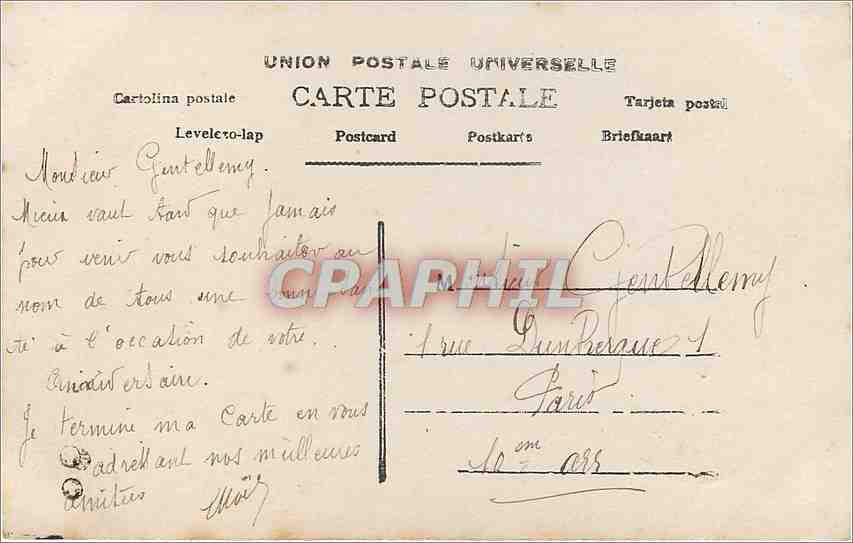 UNION POSTALE UNIVERSELLE
CARTE POSTALE
Cartolina postale
Tarjeta postal
Levelezo-lap
Postcard
Postkarte
Briefkaart
Monsieur Gentellemy.
Mieux vaut tard que Jamais
pour venir vous souhaiter au
nom de tous une bonne san
té à l'occation de votre
Aniversaire.
Je termine ma Carte en vous
adressant nos meilleures
amities
CPAPHIL
Monsieur Gentellemy
1 rue Dunkerque 1
Paris
10 em arr